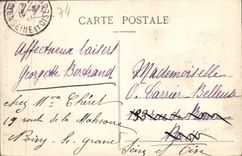 74
CARTE POSTALE
SEINE ET OISE
Affectueux baisers
Georgette Bertrand
chez Mme Théret
19 route de la
Noisy le Grand
Mademoiselle
O. Carrier Belleuse
Seine et Oise